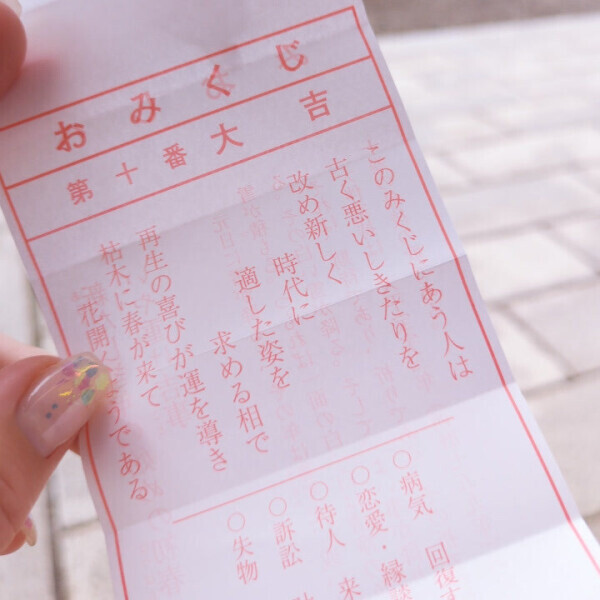 おみくじ
第十番 大吉
このみくじにあう人は
古く悪いしきたりを
改め新しく
時代に
適した姿を
求める相で
再生の喜びが運を導き
枯木に春が来て
花開くようである
○病気 回復す
○恋愛・縁談
○待人 来
○訴訟
○失物